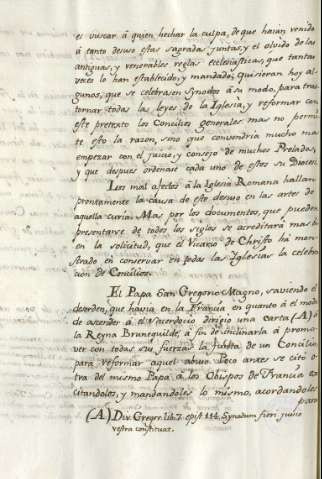 es buscar á quien hechar la culpa, de que haian venido
á tanto desuso estas sagradas juntas, y el olvido de las
antiguas, y venerables reglas ecclesiasticas, que tantas
veces lo han establecido, y mandado, quisieran hoy al-
gunos, que se celebrasen Synodos á su modo, para tras
tornar todas las leyes de la Iglesia, y reformar con
este pretexto los Concilios generales mas no permi
te esto la razon, sino que convendria mucho mas
empezar con el juicio, y consejo de muchos Prelados,
y que despues ordenase cada uno de estos su Diocesi.
Los mal afectos á la Iglesia Romana hallan
prontamente la causa de este desuso en las artes de
aquella curia. Mas por los documentos, que pueden
presentarse de todos los siglos se acreditara mas b
en la solicitud, que el Vicario de Christo há mos-
trado en conservar en todas las Iglesias la celebra
cion de Concilios.
El Papa San Gregorio Magno, saviendo el
desorden, que havia en la Francia en quanto á el modo
de ascender á el Sacerdocio dirigio una carta (A) á
la Reyna Brunequilde, á fin de inclinarla á promo-
ver con todas sus fuerzas la Junta de un Concilio
para reformar aquel abuso. Poco antes se citó o
tra del mismo Papa á los Obispos de Francia ex
citandoles, y mandandoles lo mismo, acordandoles
para
(A) Div. Gregor. lib. 7. epist. 114. Synodum fieri jussio
vestra constituat.